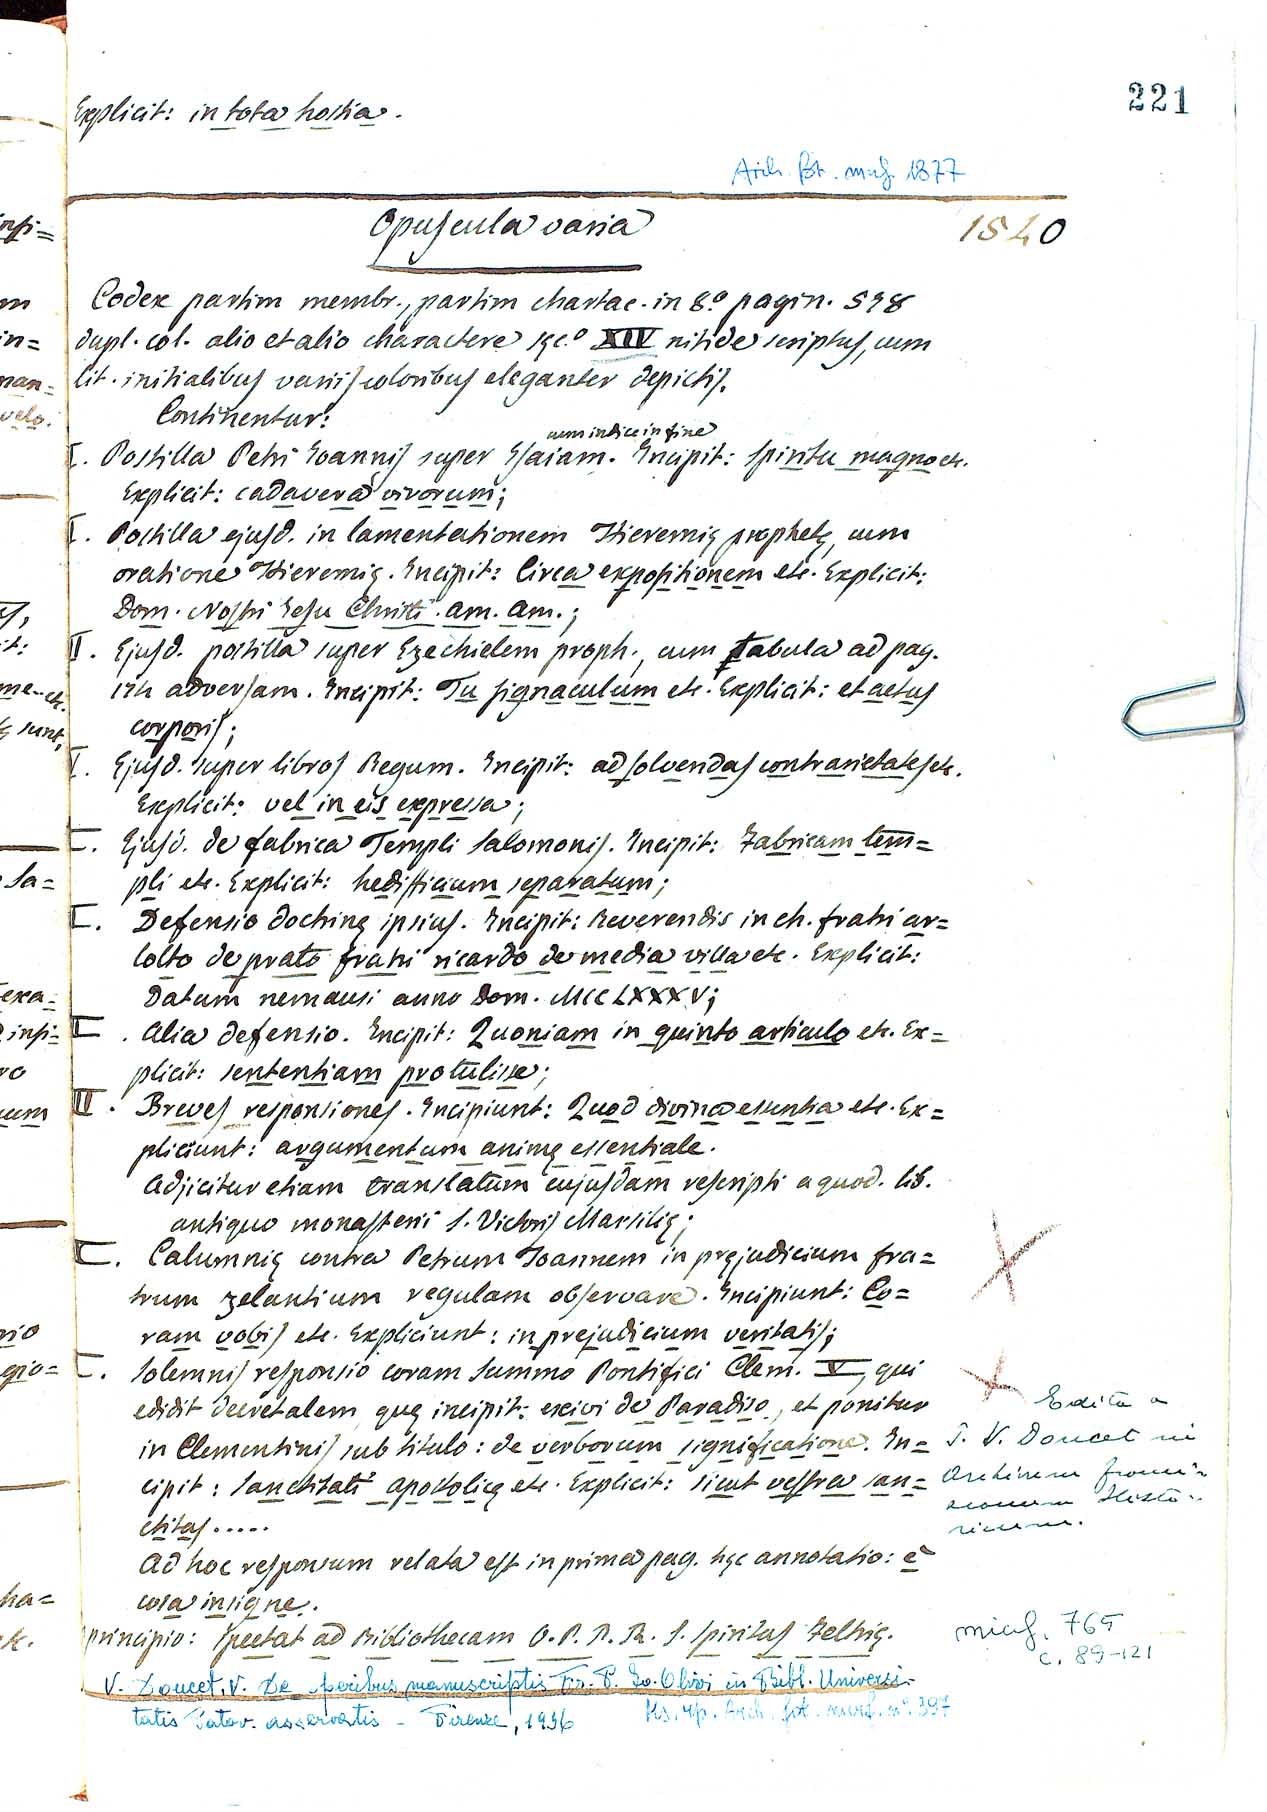 221
Explicit: in tota hostia.
Arch. fot. micf. 1877
Opuscula varia 1540
Codex partim membr., partim chartac. in 8.º pagin. 598
dupl. col. alio et alio charactere sęc.º XIV nitide scriptus, cum
lit. initialibus variis coloribus eleganter depictis.
Continentur:
cum indice in fine
I. Postilla Petri Ioannis super Esaiam. Incipit: Spiritu magno etc.
Explicit: cadavera vivorum;
I. Postilla ejusd. in lamentationem Hieremię prophetę, cum
oratione Hieremię. Incipit: Circa expositionem etc. Explicit:
Dom. Nostri Iesu Christi. am. am.;
II. Ejusd. postilla super Ezechielem proph., cum tabula ad pag.
194 adversam. Incipit: Tu signaculum etc. Explicit: et actus
corporis;
I. Ejusd. super libros Regum. Incipit: ad solvendas contrarietates etc.
Explicit: vel in eis expressa;
Ejusd. de fabrica Templi Salomonis. Incipit: Fabricam tem=
pli etc. Explicit: hedifficium separatum;
Defensio doctrinę ipsius. Incipit: Reverendis in ch. fratri ar=
lotto de prato fratri ricardo de media villa etc. Explicit:
Datum nemausi anno Dom. MCCLXXXV;
Alia defensio. Incipit: Quoniam in quinto articulo etc. Ex=
plicit: sententiam protulisse;
II. Breves responsiones. Incipiunt: Quod divina essentia etc. Ex=
pliciunt: argumentum animę essentiale.
Adjicitur etiam translatum cujusdam rescripti a quod. lib.
antiquo monasterii S. Victoris Marsilię;
Calumnię contra Petrum Ioannem in pręjudicium fra=
trum zelantium regulam observare. Incipiunt: Co=
ram vobis etc. Expliciunt: in prejudicium veritatis;
Solemnis responsio coram Summo Pontifici Clem. V, qui
edidit decretalem, quę incipit: exivi de Paradiso, et ponitur
in Clementinis sub titulo: de verborum significatione. In=
cipit: Sanctitati apostolicę etc. Explicit: sicut vestra san=
ctitas.....
Edita a
P. V. Doucet in
Archivum franci-
scanum Histo-
ricum.
Ad hoc responsum relata est in prima pag. hęc annotatio: è
cosa insigne.
principio: Spectat ad Bibliothecam O. P. R. R. S. Spiritus Feltrię.
micf. 765
c. 89-121
V. Doucet, V. De operibus manuscriptis Fr. P. Io. Olivi in Bibl. Universi-
tatis Patav. asservatis - Firenze, 1936
Ms. rip. Arch. fot. micf. nº 397